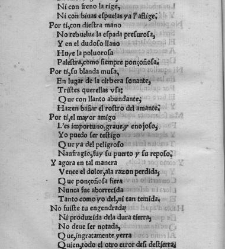 Ni con freno le rige,
Ni con biuas espuelas ya l'aflige.
Por ti, con diestra mano
No rebuelue la espada presurosa,
Y en el dudoso llano
Huye la poluorosa
Palestra, como sierpe ponçoñosa.
Por ti, su blanda musa,
En lugar de la cithera sonante,
Tristes querellas vsa,
Que con llanto abundante,
Hazen bañar el rostro del amante.
Por ti, el mayor amigo
L'es importuno, graue, y enojoso,
Yo puedo ser testigo
Que ya del peligroso
Naufragio, fuy su puerto y su reposo,
Y agora en tal manera
Vence el dolor, a la razon perdida,
Que ponçoñosa fiera
Nunca fue aborrecida
Tanto como yo del, ni tan temida.
No fuiste tu engendrada,
Ni produzida dela dura tierra,
No deue ser notada,
Que, ingratamente yerra
Quien, todo el otro error de si destierra,